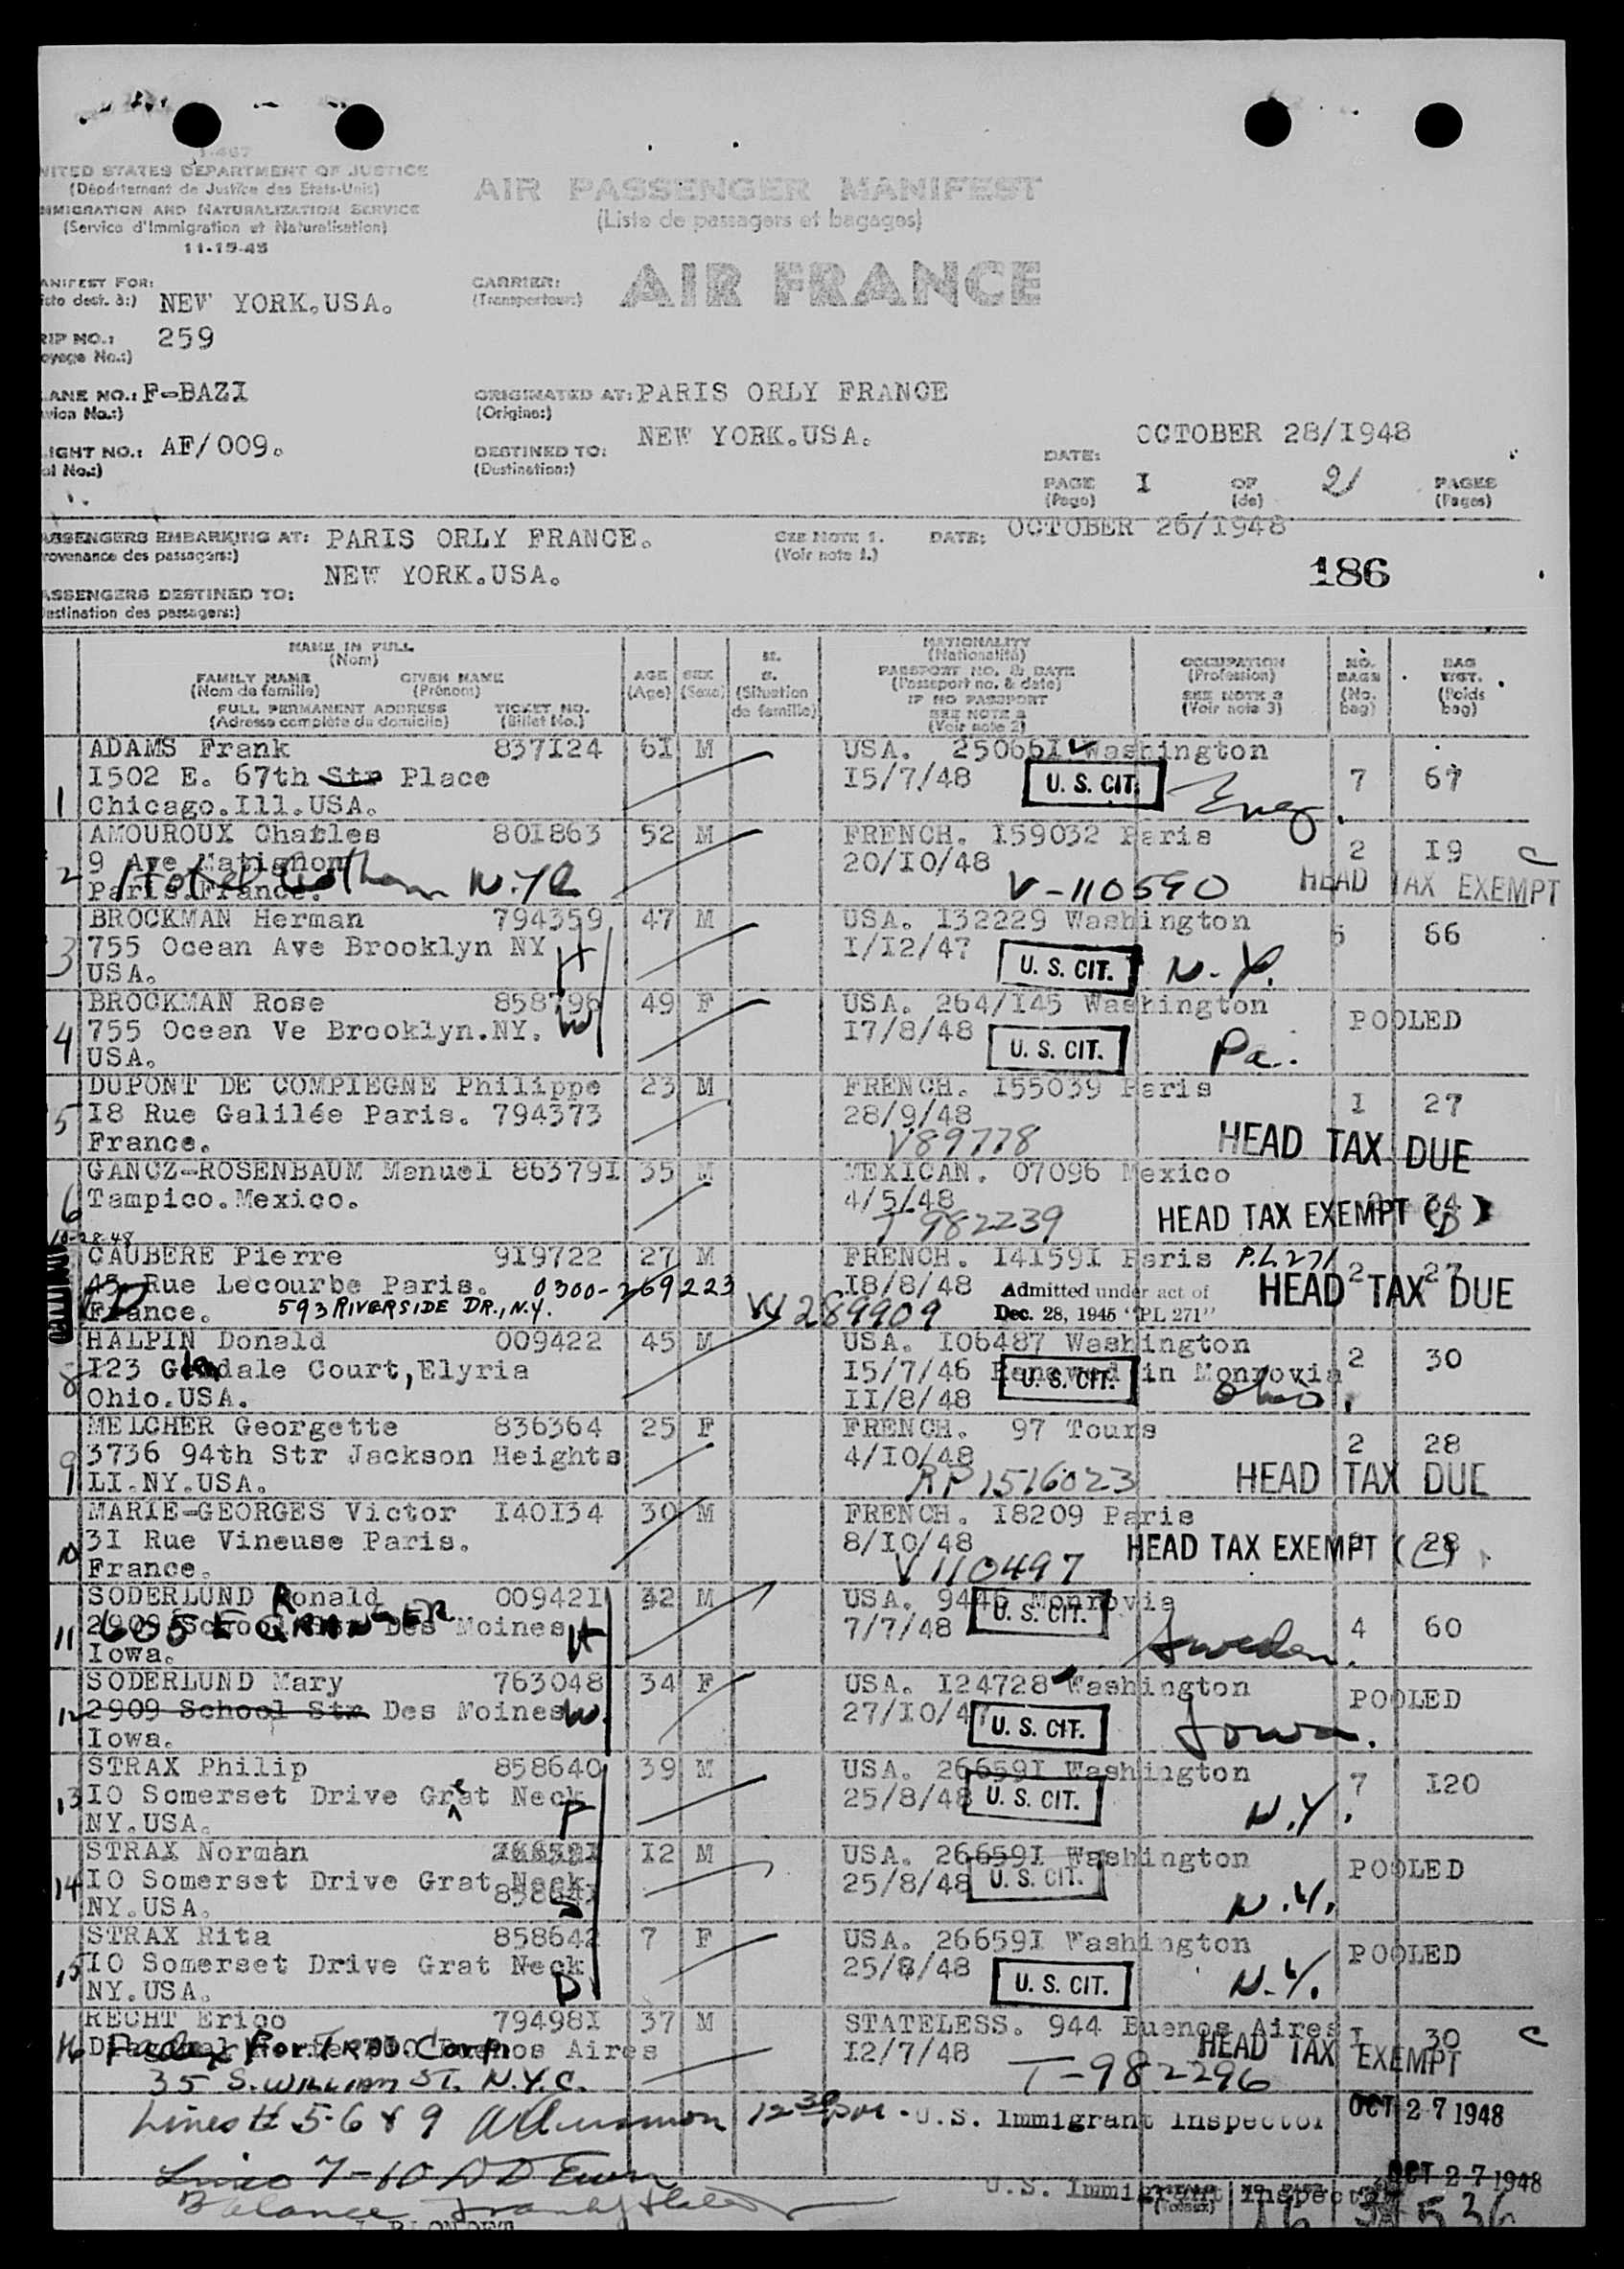 1-467
NITED STATES DEPARTMENT OF JUSTICE
(Département de Justice des Etats-Unis)
MMIGRATION AND NATURALIZATION SERVICE
(Service d'Immigration et Naturalisation)
11-15-45
AIR PASSENGER MANIFEST
(Liste de passagers et bagages)
ANIFEST FOR:
iste dest. à:) NEW YORK.USA.
CARRIER:
(Transporteur:)
AIR FRANCE
RIP NO.: 259
oyage No.:)
LANE NO.: F-BAZI
vion No.:)
ORIGINATED AT: PARIS ORLY FRANCE
(Origine:)
LIGHT NO.: AF/009.
ol No.:)
DESTINED TO: NEW YORK.USA.
(Destination:)
DATE: OCTOBER 28/I948
PAGE I OF 2 PAGES
(Page) (de) (Pages)
ASSENGERS EMBARKING AT: PARIS ORLY FRANCE.
rovenance des passagers:)
SEE NOTE 1.
(Voir note 1.)
DATE: OCTOBER 26/I948
186
ASSENGERS DESTINED TO: NEW YORK.USA.
estination des passagers:)
NAME IN FULL
(Nom)
FAMILY NAME GIVEN NAME
(Nom de famille) (Prénom)
FULL PERMANENT ADDRESS TICKET NO.
(Adresse complète du domicile) (Billet No.)
AGE
(Age)
SEX
(Sexe)
M.
S.
(Situation
de famille)
NATIONALITY
(Nationalité)
PASSPORT NO. & DATE
(Passeport no. & date)
IF NO PASSPORT
SEE NOTE 2
(Voir note 2)
OCCUPATION
(Profession)
SEE NOTE 3
(Voir note 3)
NO.
BAGS
(No.
bag)
BAG
WGT.
(Poids
bag)
ADAMS Frank 837I24 6I M USA. 25066I Washington
I502 E. 67th Str Place I5/7/48 U. S. CIT. Eng. 7 67
1 Chicago.Ill.USA.
AMOUROUX Charles 80I863 52 M FRENCH. I59032 Paris
9 Ave Matignon 20/I0/48 2 I9 C
2 Paris.France. Hotel Gotham N.Y.C. V-110590 HEAD TAX EXEMPT
BROCKMAN Herman 794359 47 M USA. I32229 Washington
3 755 Ocean Ave Brooklyn NY H I/I2/47 5 66
USA. U. S. CIT. N.Y.
BROCKMAN Rose 858796 49 F USA. 264/I45 Washington
4 755 Ocean Ve Brooklyn.NY. W I7/8/48 POOLED
USA. U. S. CIT. Pa.
DUPONT DE COMPIEGNE Philippe 23 M FRENCH. I55039 Paris
5 I8 Rue Galilée Paris. 794373 28/9/48 I 27
France. V89778 HEAD TAX DUE
GANCZ-ROSENBAUM Manuel 86379I 35 M MEXICAN. 07096 Mexico
6 Tampico.Mexico. 4/5/48 34
T 982239 HEAD TAX EXEMPT (D)
10-28-48
CAUBERE Pierre 9I9722 27 M FRENCH. I4I59I Paris P.L.271
45 Rue Lecourbe Paris. 0300-269223 I8/8/48 Admitted under act of 2 27
France. 593 RIVERSIDE DR., N.Y. 289909 Dec. 28, 1945 "PL 271" HEAD TAX DUE
HALPIN Donald 009422 45 M USA. I06487 Washington
8 I23 Glendale Court,Elyria I5/7/46 Renewed in Monrovia 2 30
Ohio.USA. II/8/48 U. S. CIT. Ohio.
MELCHER Georgette 836364 25 F FRENCH. 97 Tours
9 3736 94th Str Jackson Heights 4/I0/48 2 28
LI.NY.USA. RP 1516023 HEAD TAX DUE
MARIE-GEORGES Victor I40I34 30 M FRENCH. I8209 Paris
10 3I Rue Vineuse Paris. 8/I0/48 28
France. V110497 HEAD TAX EXEMPT (C)
SODERLUND Ronald 00942I 32 M USA. 9446 Monrovia
11 2909 School Str Des Moines 605 E GRANGER H 7/7/48 U. S. CIT. 4 60
Iowa. Sweden.
SODERLUND Mary 763048 34 F USA. I24728 Washington
12 2909 School Str Des Moines W. 27/I0/47 POOLED
Iowa. U. S. CIT. Iowa.
STRAX Philip 858640 39 M USA. 26659I Washington
13 I0 Somerset Drive Great Neck 25/8/48 7 I20
NY.USA. F U. S. CIT. N.Y.
STRAX Norman I2 M USA. 26659I Washington
14 I0 Somerset Drive Grat Neck 25/8/48 POOLED
NY.USA. 85864I S U. S. CIT. N.Y.
STRAX Rita 858642 7 F USA. 26659I Washington
15 I0 Somerset Drive Grat Neck 25/8/48 POOLED
NY.USA. D U. S. CIT. N.Y.
RECHT Erico 79498I 37 M STATELESS. 944 Buenos Aires I 30 C
16 Buenos Aires I2/7/48 HEAD TAX EXEMPT
35 S. WILLIAM ST. N.Y.C. T-982296
Lines # 5-6 & 9 12 30 PM - U.S. Immigrant Inspector OCT 27 1948
Lines 7-10
Balance U.S. Immigrant Inspector OCT 27 1948
16 536